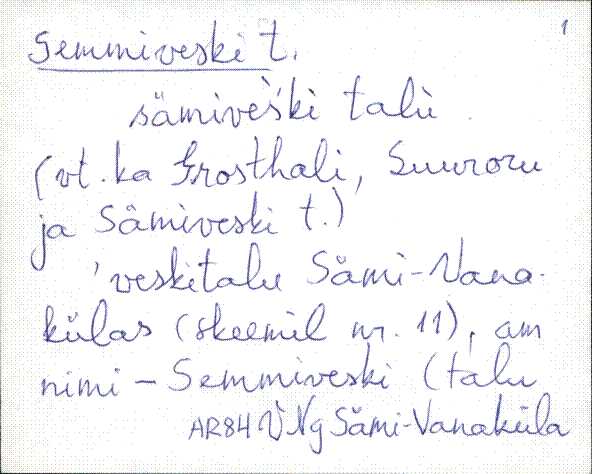 1
Semmiveski t.
sämiveśki talù
(vt. ka Grosthali, Suuroru
ja Sämiveski t.)
'veskitalu Sämi-Vana-
külas (skeemil nr. 11), am
nimi – Semmiveski (talu
AR84 VNg Sämi-Vanaküla